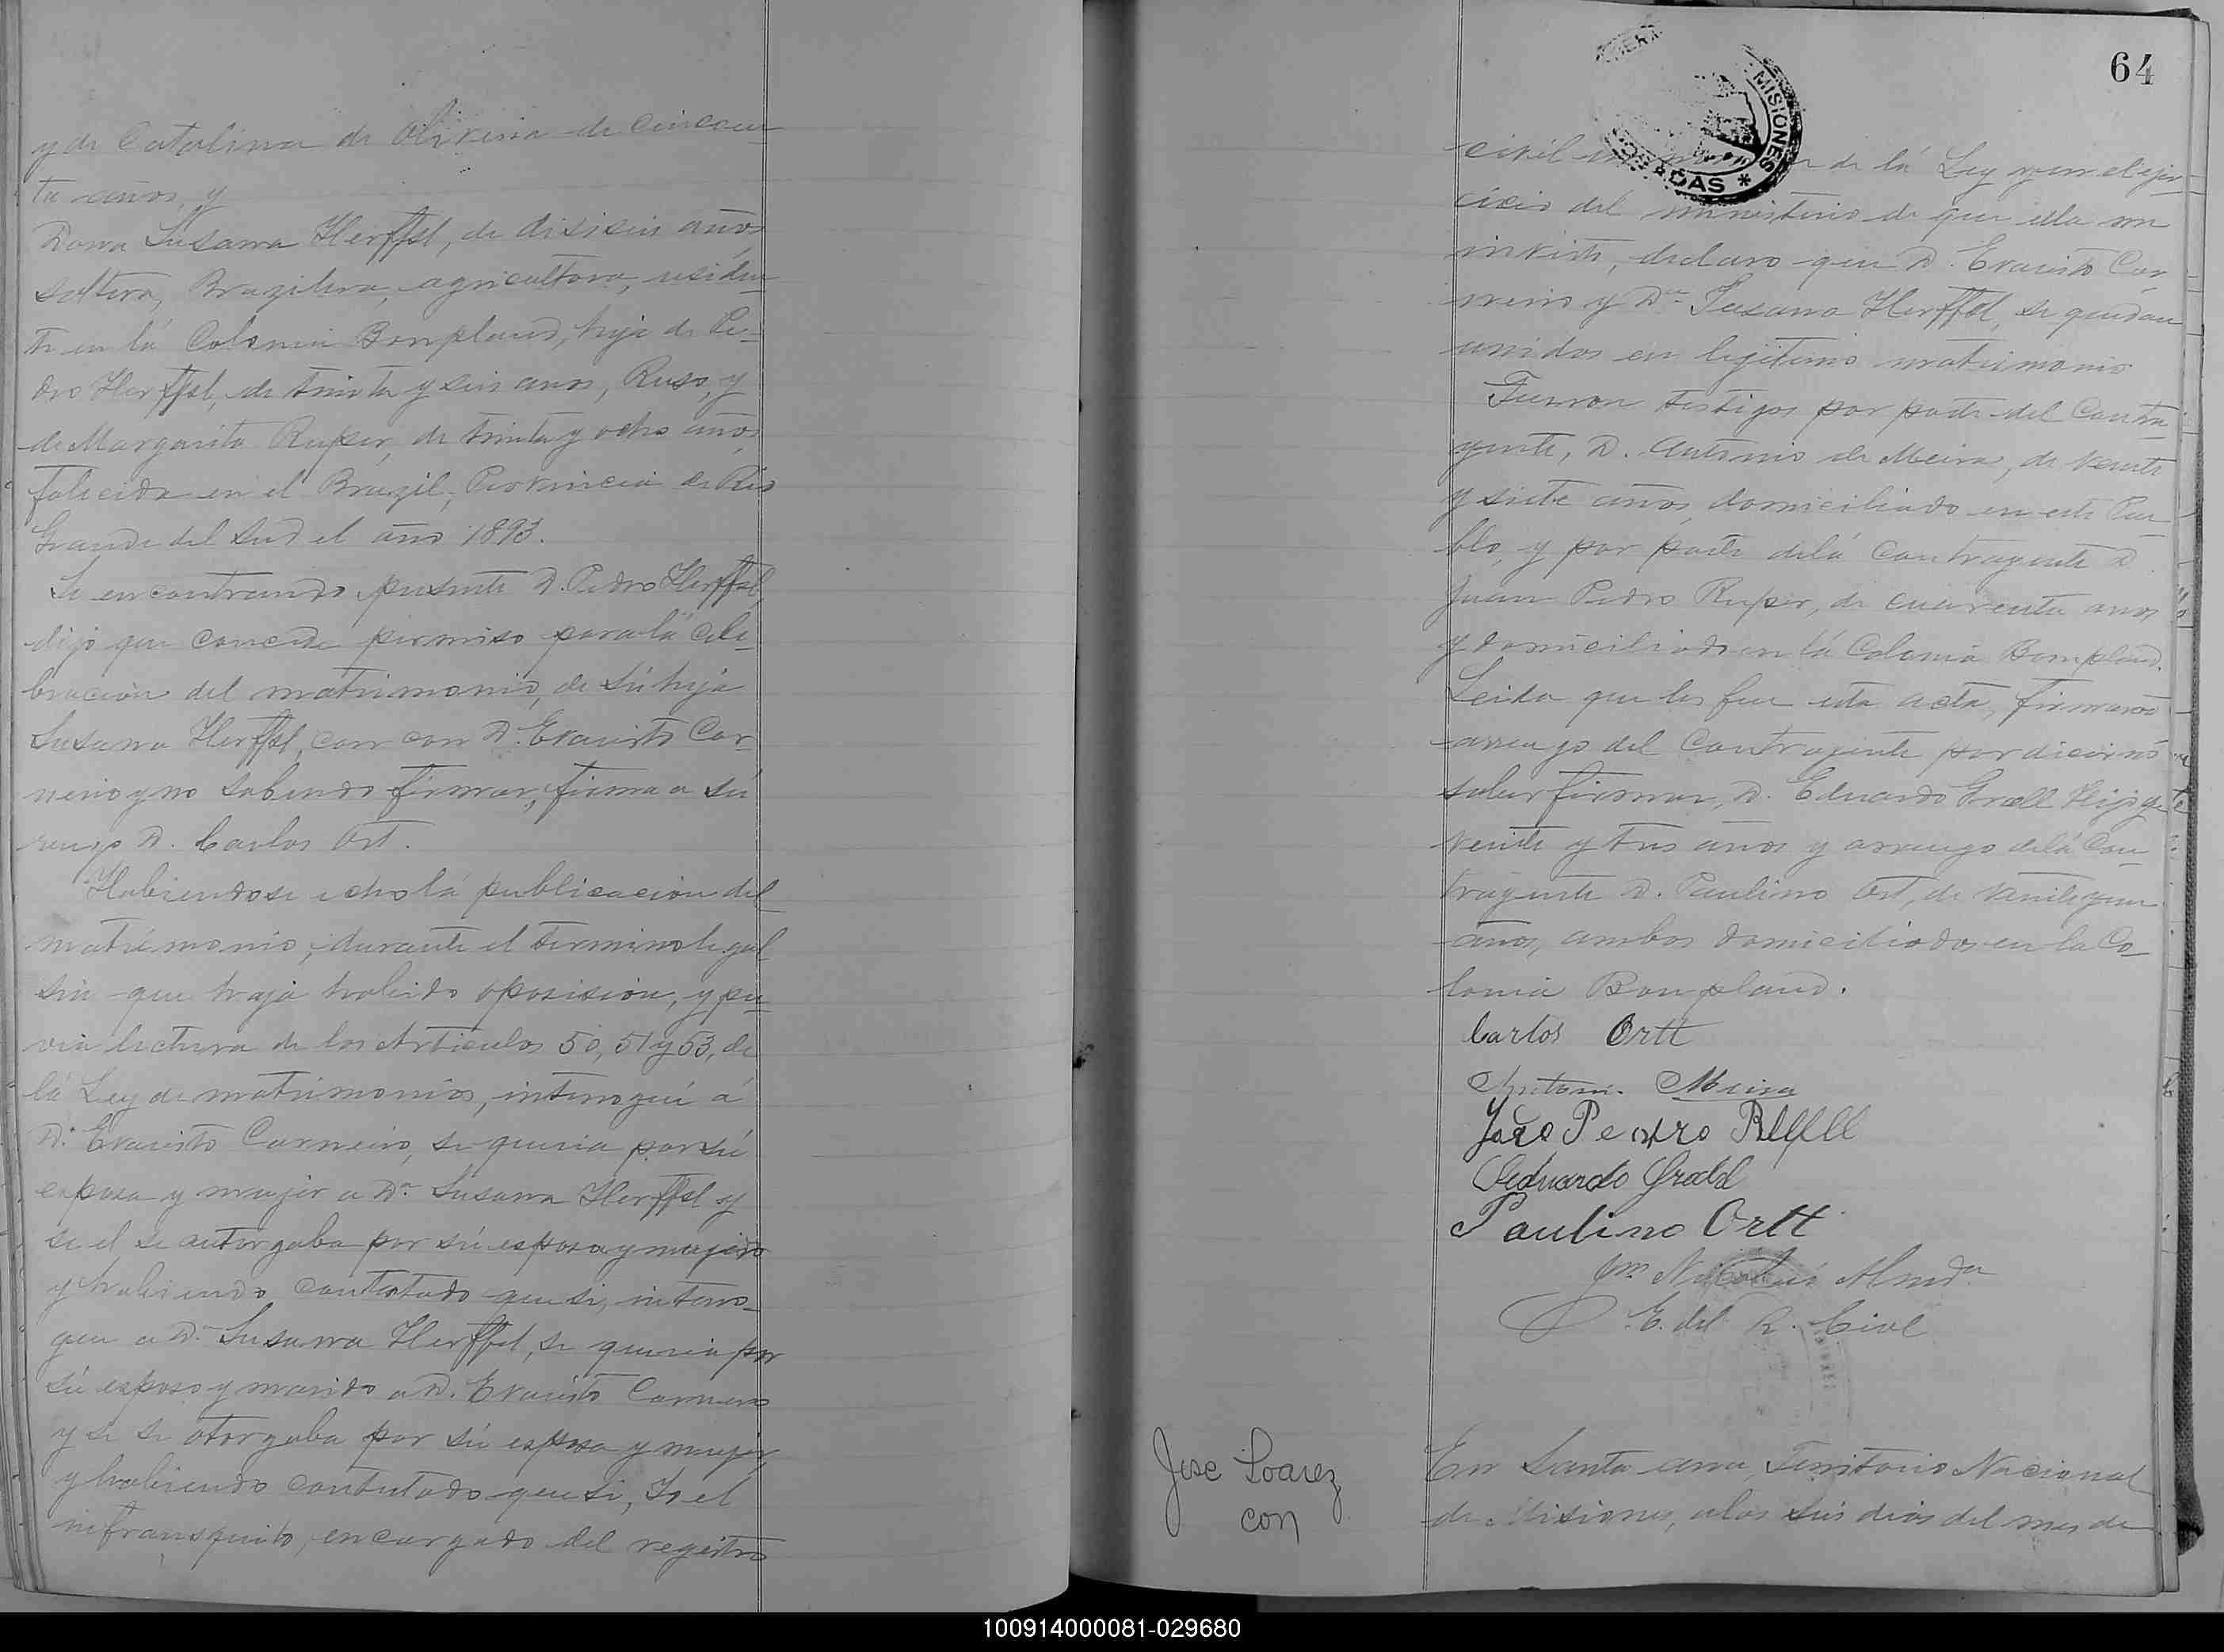 y de Catalina de Oliveira de cincuen
ta años, y
Dona Susana Herffel, de disiseis años
soltera, Brazilera, agricultora, residen
te en lá Colonia Bonpland, hija de Pe-
dro Herffel, de trinta y seis anos, Ruso, y
de Margarita Ruper, de trinta y ocho años
falecida en el Brazil, Provincia de Rio
Grande del Sud el año 1893.
Se encontrando presente D. Pedro Herffel,
dijo que concede permiso para lá cele-
bracion del matrimonio, de sú hija
Susana Herffel, con con D. Evaristo Car-
neiro y no sabendo firmar, firma a sú
ruego D. Carlos Ort.
Habiendose echo lá publicacion del
matrimonio, durante el termino legal
sin que haja habido oposision, y pre-
via lectura de los Articulos 50, 51 y 53, de
lá Ley de matrimonios, interogué á
D. Evaristo Carneiro, se queria por sú
esposa y mujer a Da. Susana Herffel y
se el se autorgaba por sú esposo y marido
y habiendo contestado que si, interro-
gue a Da. Susana Herffel, se queria por
sú esposo y marido a D. Evaristo Carneiro
y se se otorgaba por sú esposa y mujer,
y habiendo contestado que si, Yo el
infransquito, encargado del registro
64
MISIONES
POSADAS *
civil de lá Ley y en el ejer-
cicio del ministerio de que ella me
inviste, declaro que D. Evaristo Car-
neiro y Da. Susana Herffel, se quedan
unidos en legitimo matrimonio
Fueron testigos por parte del Contra-
yente, D. Antonio de Meira, de veinte
y siete años domiciliado en este Pue-
blo, y por parte de lá contrayente D.
Juan Pedro Ruper, de cuarenta anos
y domiciliado en lá Colonia Bonpland.
Leida que les fue esta acta, firmaron
arruego del Contrayente por dicir no
saber firmar, D. Eduardo Graell Hijo, de
veinte y tres años y arruego de lá Con-
trayente D. Paulino Ort, de veinte y un
años, ambos domiciliados en la Co-
lonia Bonpland.
Carlos Ortt
Antoni. Meira
João Pedro
Eduardo
Paulino Ortt
E. del R. Civl
Jose Soarez
con
En Santa ana, Territorio Nacional
de Misiones, a los seis dias del mes de
100914000081-029680